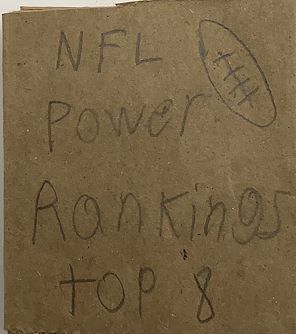 NFL
Power
Rankings
TOP 8